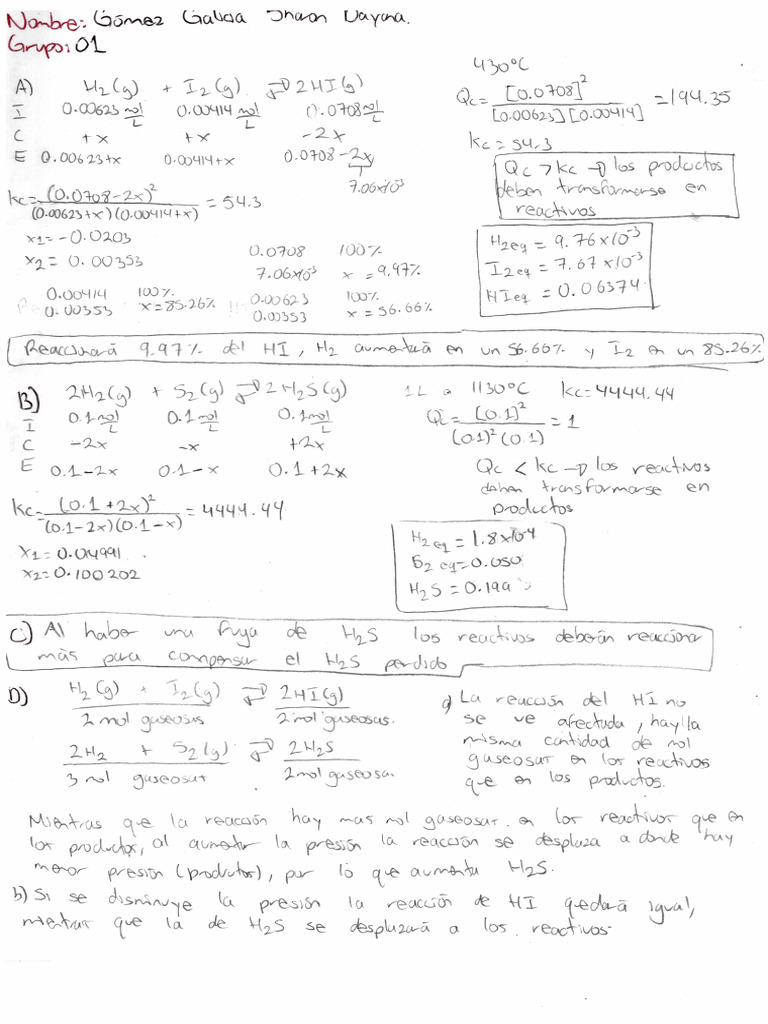 Nombre: Gómez Galicia Sharon Dayana.
Grupo: 01
A) H₂(g) + I₂(g) ⇄ 2HI(g)
I 0.00623 mol/L 0.00414 mol/L 0.0708 mol/L
C +x +x -2x
E 0.00623+x 0.00414+x 0.0708-2x
7.06x10⁻³
430°C
Qc = [0.0708]² / [0.00623][0.00414] = 194.35
Kc = 54.3
Qc > Kc → los productos
deben transformarse en
reactivos
Kc = (0.0708-2x)² / (0.00623+x)(0.00414+x) = 54.3
x₁ = -0.0203
x₂ = 0.00353
0.0708 100%
7.06x10⁻³ x = 9.97%
0.00414 100%
0.00353 x = 85.26%
0.00623 100%
0.00353 x = 56.66%
H₂eq = 9.76x10⁻³
I₂eq = 7.67x10⁻³
HIeq = 0.06374
Reaccionará 9.97% del HI, H₂ aumentará en un 56.66% y I₂ en un 85.26%
B) 2H₂(g) + S₂(g) ⇄ 2H₂S(g)
I 0.1 mol/L 0.1 mol/L 0.1 mol/L
C -2x -x +2x
E 0.1-2x 0.1-x 0.1+2x
1L a 1130°C Kc = 4444.44
Qc = [0.1]² / (0.1)²(0.1) = 1
Qc < Kc → los reactivos
deben transformarse en
productos
Kc = (0.1+2x)² / (0.1-2x)(0.1-x) = 4444.44
x₁ = 0.04991
x₂ = 0.100202
H₂eq = 1.8x10⁻⁴
S₂eq = 0.050
H₂S = 0.199
C) Al haber una fuga de H₂S los reactivos deberán reaccionar
más para compensar el H₂S perdido
D) H₂(g) + I₂(g) ⇄ 2HI(g)
2 mol gaseosas 2 mol gaseosas.
2H₂ + S₂(g) ⇄ 2H₂S
3 mol gaseosas 2 mol gaseosa
a) La reacción del HI no
se ve afectada, hay la
misma cantidad de mol
gaseosas en los reactivos
que en los productos.
Mientras que la reacción hay mas mol gaseosas en los reactivos que en
los productos, al aumentar la presión la reacción se desplaza a donde hay
menor presión (productos), por lo que aumenta H₂S.
b) Si se disminuye la presión la reacción de HI quedará igual,
mientras que la de H₂S se desplazará a los reactivos